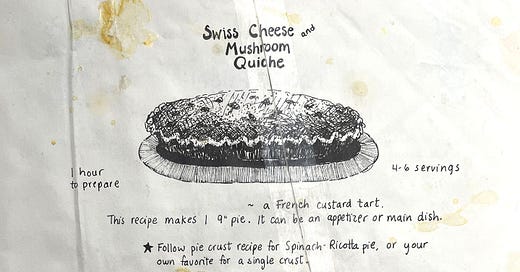 Swiss Cheese and
Mushroom
Quiche
1 hour
to prepare
4-6 servings
~ a French custard tart.
This recipe makes 1 9" pie. It can be an appetizer or main dish.
★ Follow pie crust recipe for Spinach-Ricotta pie, or your
own favorite for a single crust.